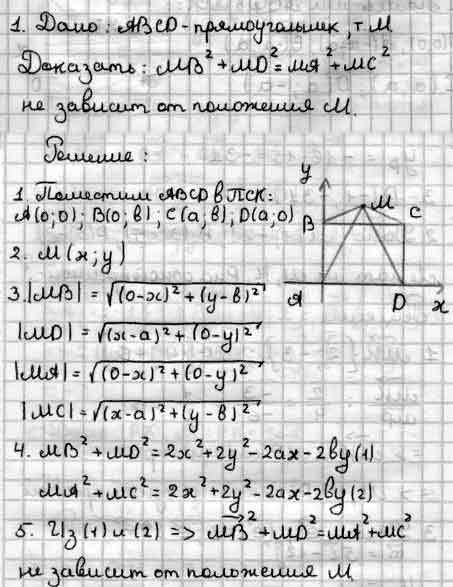 1. Дано: ABCD - прямоугольник, т. M
Доказать: MB² + MD² = MA² + MC²
не зависит от положения M.
Решение:
1. Поместим ABCD в ПСК:
A(0;0); B(0;в); C(a;в); D(a;0)
2. M(x;y)
3. |MB| = √((0-x)² + (y-в)²)
|MD| = √((x-a)² + (0-y)²)
|MA| = √((0-x)² + (0-y)²)
|MC| = √((x-a)² + (y-в)²)
y
M
B
C
A
D
x
4. MB² + MD² = 2x² + 2y² - 2ax - 2вy (1)
MA² + MC² = 2x² + 2y² - 2ax - 2вy (2)
5. Из (1) и (2) => MB² + MD² = MA² + MC²
не зависит от положения M